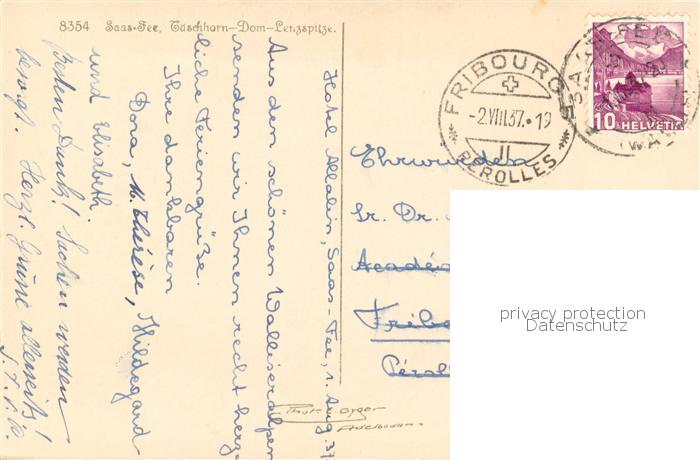 8354 Saas-Fee, Täschhorn-Dom-Lenzspitze.
Hotel Allalin, Saas-Fee, 1. Aug. 37
Aus den schönen Walliseralpen
senden wir Ihnen recht herz-
liche Feriengrüße.
Ihre dankbaren
Dora, M. Thérèse, Hildegard
und Elisabeth
Besten Dank! Sachen werden
besorgt. Herzl. Grüsse allerseits!
FRIBOURG
-2.VIII.37.-19
II
PEROLLES
SAAS-FEE
10 HELVETIA
Ehrwürden
Sr. Dr.
Académ
Fribo
Pérol
Photo Gyger
Adelboden.
privacy protection
Datenschutz